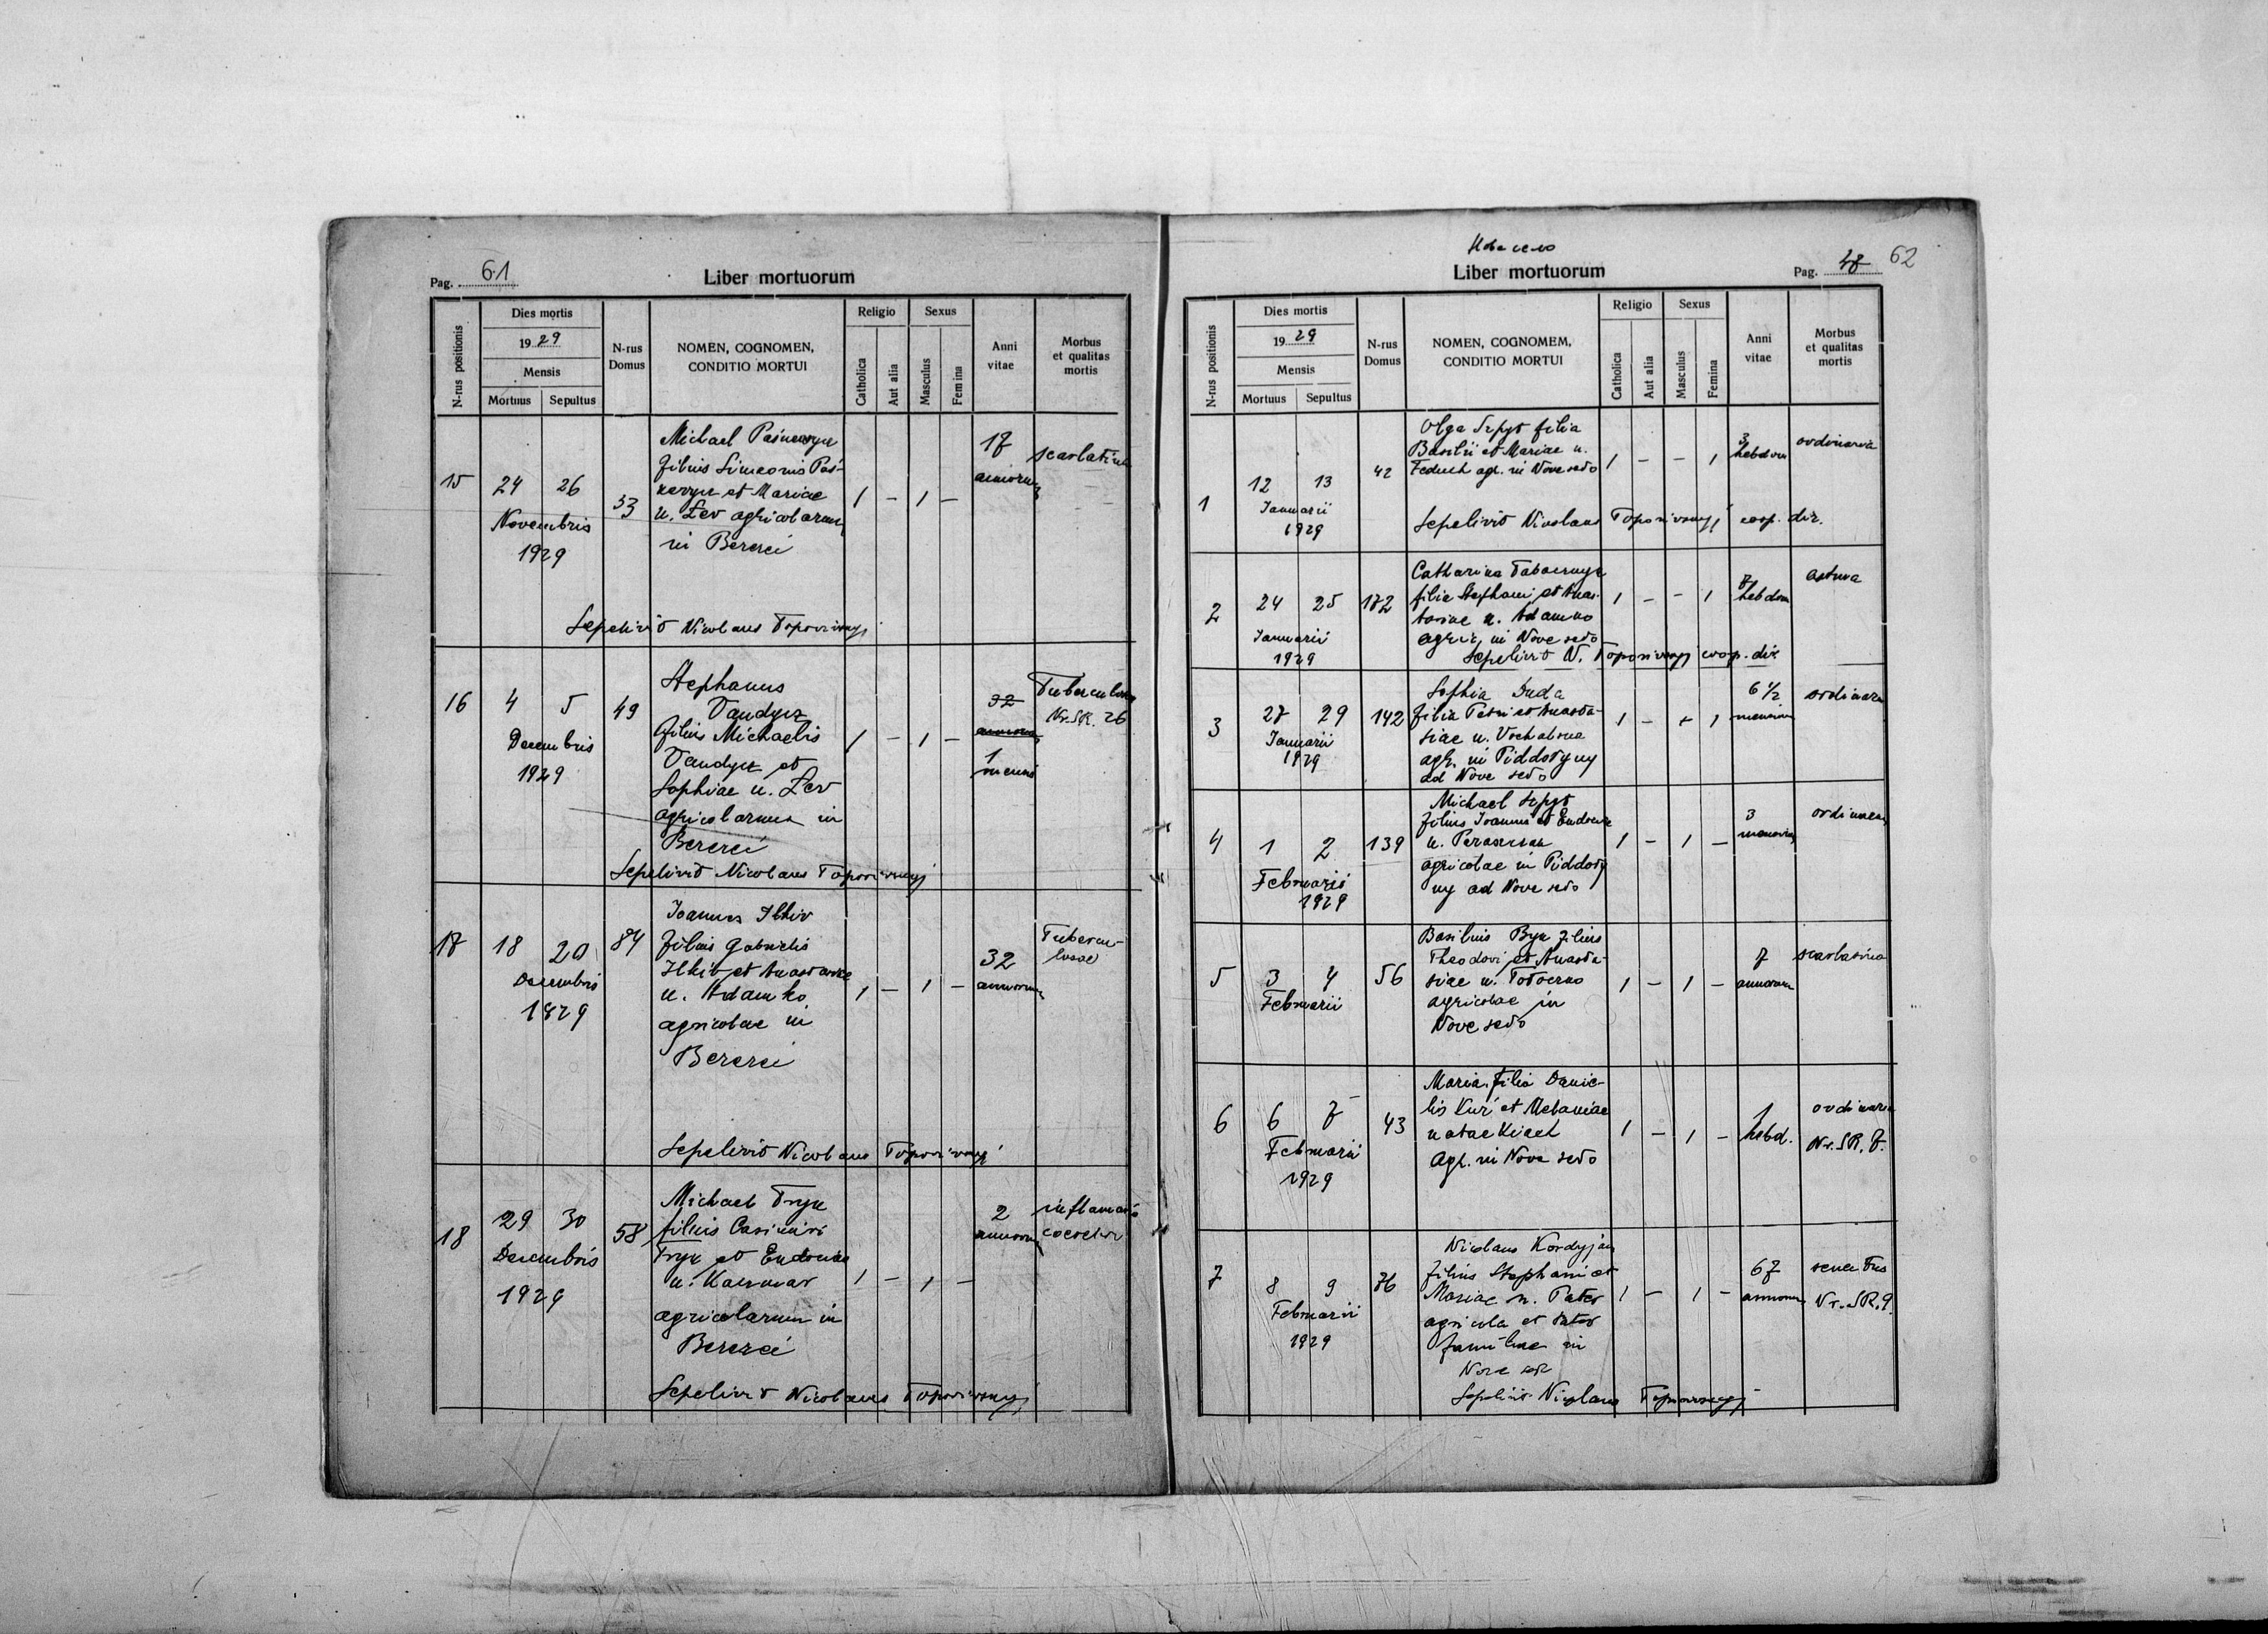 Pag. 61
Liber mortuorum
N-rus positionis
Dies mortis
19 29
Mensis
Mortuus Sepultus
N-rus Domus
NOMEN, COGNOMEN,
CONDITIO MORTUI
Religio
Catholica
Aut alia
Sexus
Masculus
Femina
Anni
vitae
Morbus
et qualitas
mortis
15
24 26
Novembris
1929
33
Michael
filius Simeonis Paś-
et Mariae
n. Lev agricolarum
in Berezci
1 - 1 -
17
annorum
scarlatina
Sepelivit Nicolaus
16
4 5
Decembris
1929
49
Stephanus
filius Michaelis
et
Sophiae n. Lev
agricolarum in
Berezci
1 - 1 -
32
annorum
1
mensis
Tuberculosa
Nr. SR. 26
Sepelivit Nicolaus
17
18 20
Decembris
1929
84
Joannes Ilkiv
filius Gabrielis
Ilkiv et Anastasiae
n. Adamko
agricolae in
Berezci
1 - 1 -
32
annorum
Tubercu-
losae
Sepelivit Nicolaus
18
29 30
Decembris
1929
58
Michael
filius Casimiri
et Eudociae
n. Kaczmar
agricolarum in
Berezci
1 - 1 -
2
annorum
Sepelivit Nicolaus
Нове село
Liber mortuorum
Pag. 48 62
N-rus positionis
Dies mortis
19 29
Mensis
Mortuus Sepultus
N-rus
Domus
NOMEN, COGNOMEM,
CONDITIO MORTUI
Religio
Catholica
Aut alia
Sexus
Masculus
Femina
Anni
vitae
Morbus
et qualitas
mortis
1
12 13
Januarii
1929
42
Olga filia
Basilii et Mariae n.
agr. in Nove seło
1 - - 1
3
hebdom
ordinaria
Sepelivit Nicolaus coop. dir.
2
24 25
Januarii
1929
172
Catharina
filia Stephani et Anas-
tasiae n. Adamko
agric. in Nove seło
1 - - 1
7
hebdom
astma
Sepelivit N. coop. dir
3
27 29
Januarii
1929
142
Sophia Duda
filia Petri et Anasta-
siae n.
agr. in Piddotyny
ad Nove seło
1 - - 1
6 1/2
mensium
ordinaria
4
1 2
Februarii
1929
139
Michael
filius Joannis et Eudociae
n.
agricolae in Piddoty
ny ad Nove seło
1 - 1 -
3
mensium
ordinaria
5
3 4
Februarii
56
Basilius Byk filius
Theodori et Anasta-
siae n.
agricolae in
Nove seło
1 - 1 -
7
annorum
scarlatina
6
6 7
Februarii
1929
43
Maria filia Danie-
lis et Melaniae
natae
Agr. in Nove seło
1 - 1 -
1
hebd.
ordinaria
Nr. SR. 7.
7
8 9
Februarii
1929
76
Nicolaus Kordyjan
filius Stephani et
Mariae n.
agricola et Pater
familiae in
Nove seło
1 - 1 -
67
annorum
senectus
Nr. SR. 9.
Sepelivit Nicolaus